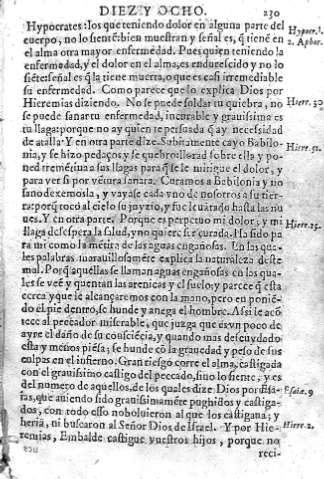 DIEZ Y OCHO. 230
Hypocrates: los que teniendo dolor en alguna parte del
cuerpo, no lo sienté: bien muestran y señal es, q̃ tiené en
el alma otra mayor enfermedad. Pues quien teniendo la
enfermedad, y el dolor en el alma, es endurescido y no lo
siéte: señal es q̃ la tiene muerta, o que es casi irremediable
su enfermedad. Como parece que lo explica Dios por
Hieremias diziendo. No se puede soldar tu quiebra, no
se puede sanar tu enfermedad, incurable y grauissima es
tu llaga: porque no ay quien se persuada q̃ ay necessidad
de atalla. Y en otra parte dize. Subitamente cayo Babilo-
nia, y se hizo pedaços y se quebro: llorad sobre ella y po-
ned para q̃ se le mitigue el dolor, y
para ver si por vétura sanara. Curamos a Babilonia y no
sino de xemosla, y vayase cada vno de nosotros a su tier-
ra: porq̃ toco al cielo su joyzio, y fue leuátado hasta las nu
ues. Y en otra parte. Porque es perpetuo mi dolor, y mi
llaga desespera la salud, y no quiere ser curada. Ha sido pa
ra mi como la métira de las aguas engañosas. En las qua-
les palabras marauillosaméte explica la naturaleza deste
mal. Porq̃ aquellas se llaman aguas engañosas en las qua-
les se veé y quentan las arenicas y el suelo: y parece q̃ esta
cerca y que le alcançaremos con la mano, pero en ponié-
do el pie dentro, se hunde y anega el hombre. Assi le acó
tece al peccador miserable, que juzga que es vn poco de
ayre el daño de su consciécia, y quando mas descuydado
esta y menos piésa; se hunde có la grauedad y peso de sus
culpas en el infierno. Gran riesgo corre el alma, castigada
con el grauissimo castigo del peccado, sino lo siente, y es
del numero de aquellos, de los quales dize Dios por Esa-
ias, que auiendo sido grauissimaméte pughidos y castiga-
dos, con todo esso no boluieron al que los castigana; y
heria, ni buscaron al Señor Dios de Israel. Y por Hie-
remias, Embalde castigue vuestros hijos, porque no
reci-
Hypocr. l.
2. Aphor.
Hiere. 30
Hiere. 51.
Hiere. 15.
Esaiæ. 9
Hiere. 2.